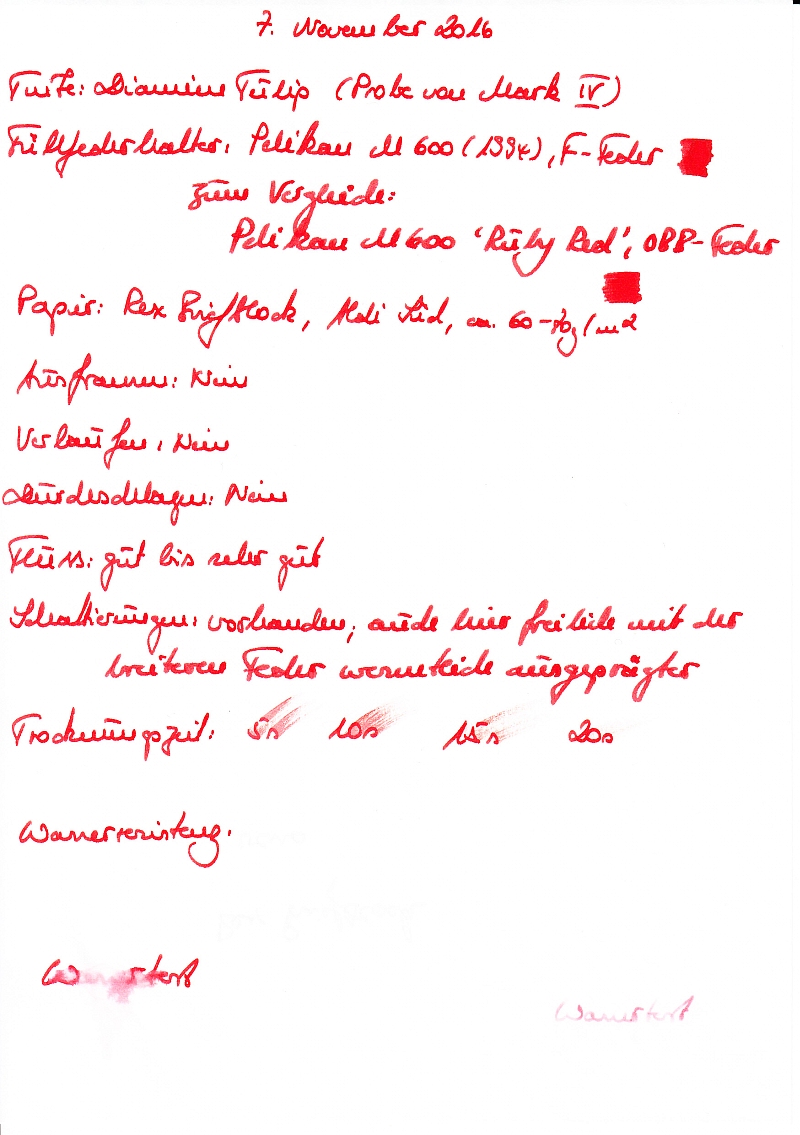 7. November 2016
Tinte: Diamine Tulip (Probe von Mark IV)
Füllfederhalter: Pelikan M 600 (1994), F-Feder
zum Vergleich:
Pelikan M 600 'Ruby Red', OBB-Feder
Papier: Rex Briefblock, Aldi Süd, ca. 60-70g/m²
Ausfransen: Nein
Verlaufen: Nein
Durchschlagen: Nein
Fluss: gut bis sehr gut
Schattierungen: vorhanden, auch hier freilich mit der
breiteren Feder wesentlich ausgeprägter
Trocknungszeit: 5s 10s 15s 20s
Wasserresistenz:
Wassertest
Wassertest